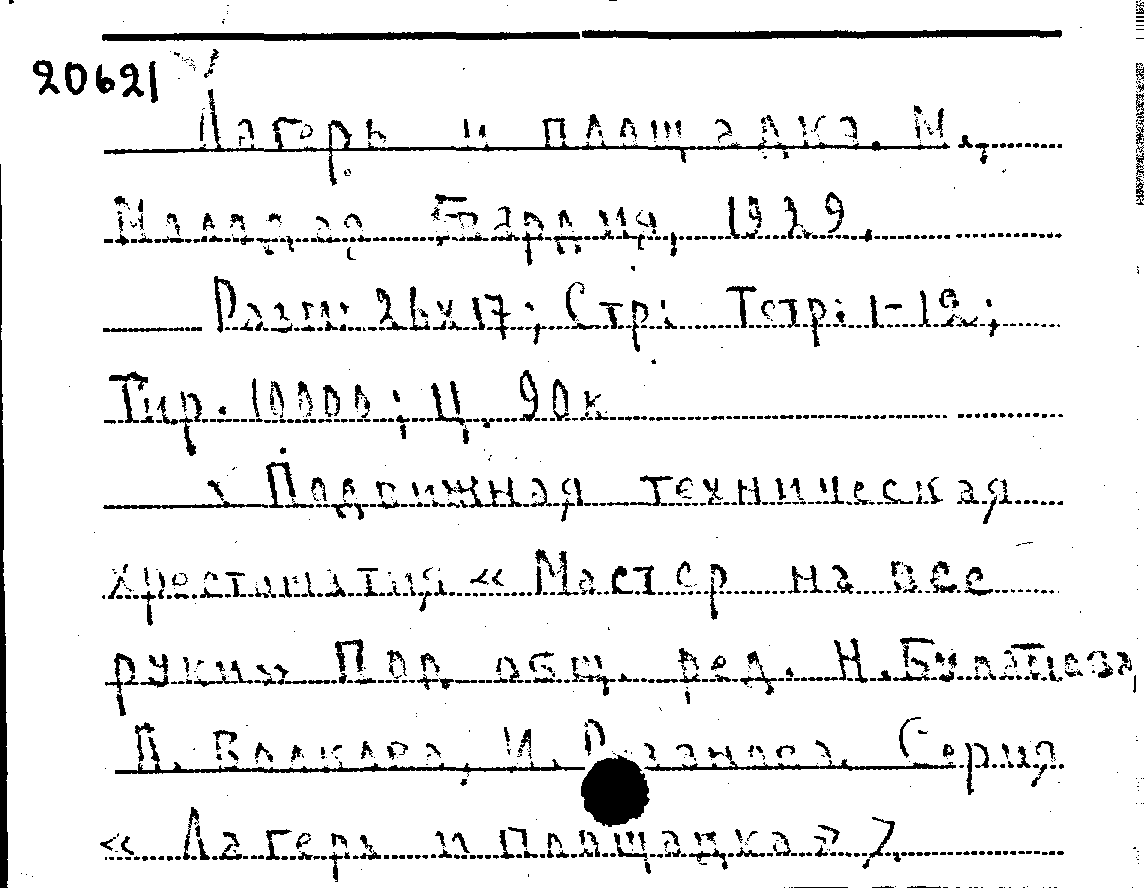 20621
Лагерь и площадка. М.,
Молодая Гвардия, 1929.
Разм: 26х17; Стр: Тетр: 1-12;
Тир. 10000; Ц. 90к
Подвижная техническая
хрестоматия «Мастер на все
руки» Под общ. ред. Н. Булатова
В. Волкова, И. Рузанова. Серия
«Лагерь и площадка»).